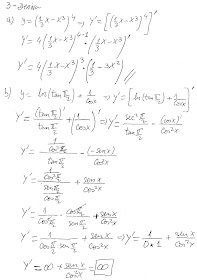 3-
a) y = (1/3 x - x3)^4 ⇒ y' = [(1/3 x - x3)^4]'
y' = 4(1/3 x - x3)^4-1 · (1/3 x - x^3)'
y' = 4(1/3 x - x3)^3 · (1/3 - 3x^2) //
b) y = ln(tan π/2) + 1/cosx ⇒ y' = [ln(tan π/2) + 1/cosx]'
y' = (tan π/2)'/tan π/2 + (1/cosx)' ⇒ y' = sec^2 π/2 / tan π/2 - (cosx)'/cos^2x
y' = 1/cos^2 π/2 / tan π/2 - (-senx)/cos^2x
y' = 1/cos^2 π/2 / sen π/2 / cos π/2 + senx/cos^2x
y' = 1/cos^2 π/2 · cos π/2 / sen π/2 + senx/cos^2x
y' = 1/cos π/2 sen π/2 + senx/cos^2x ⇒ y' = 1/0*1 + senx/cos^2x
y' = ∞ + senx/cos^2x = ∞